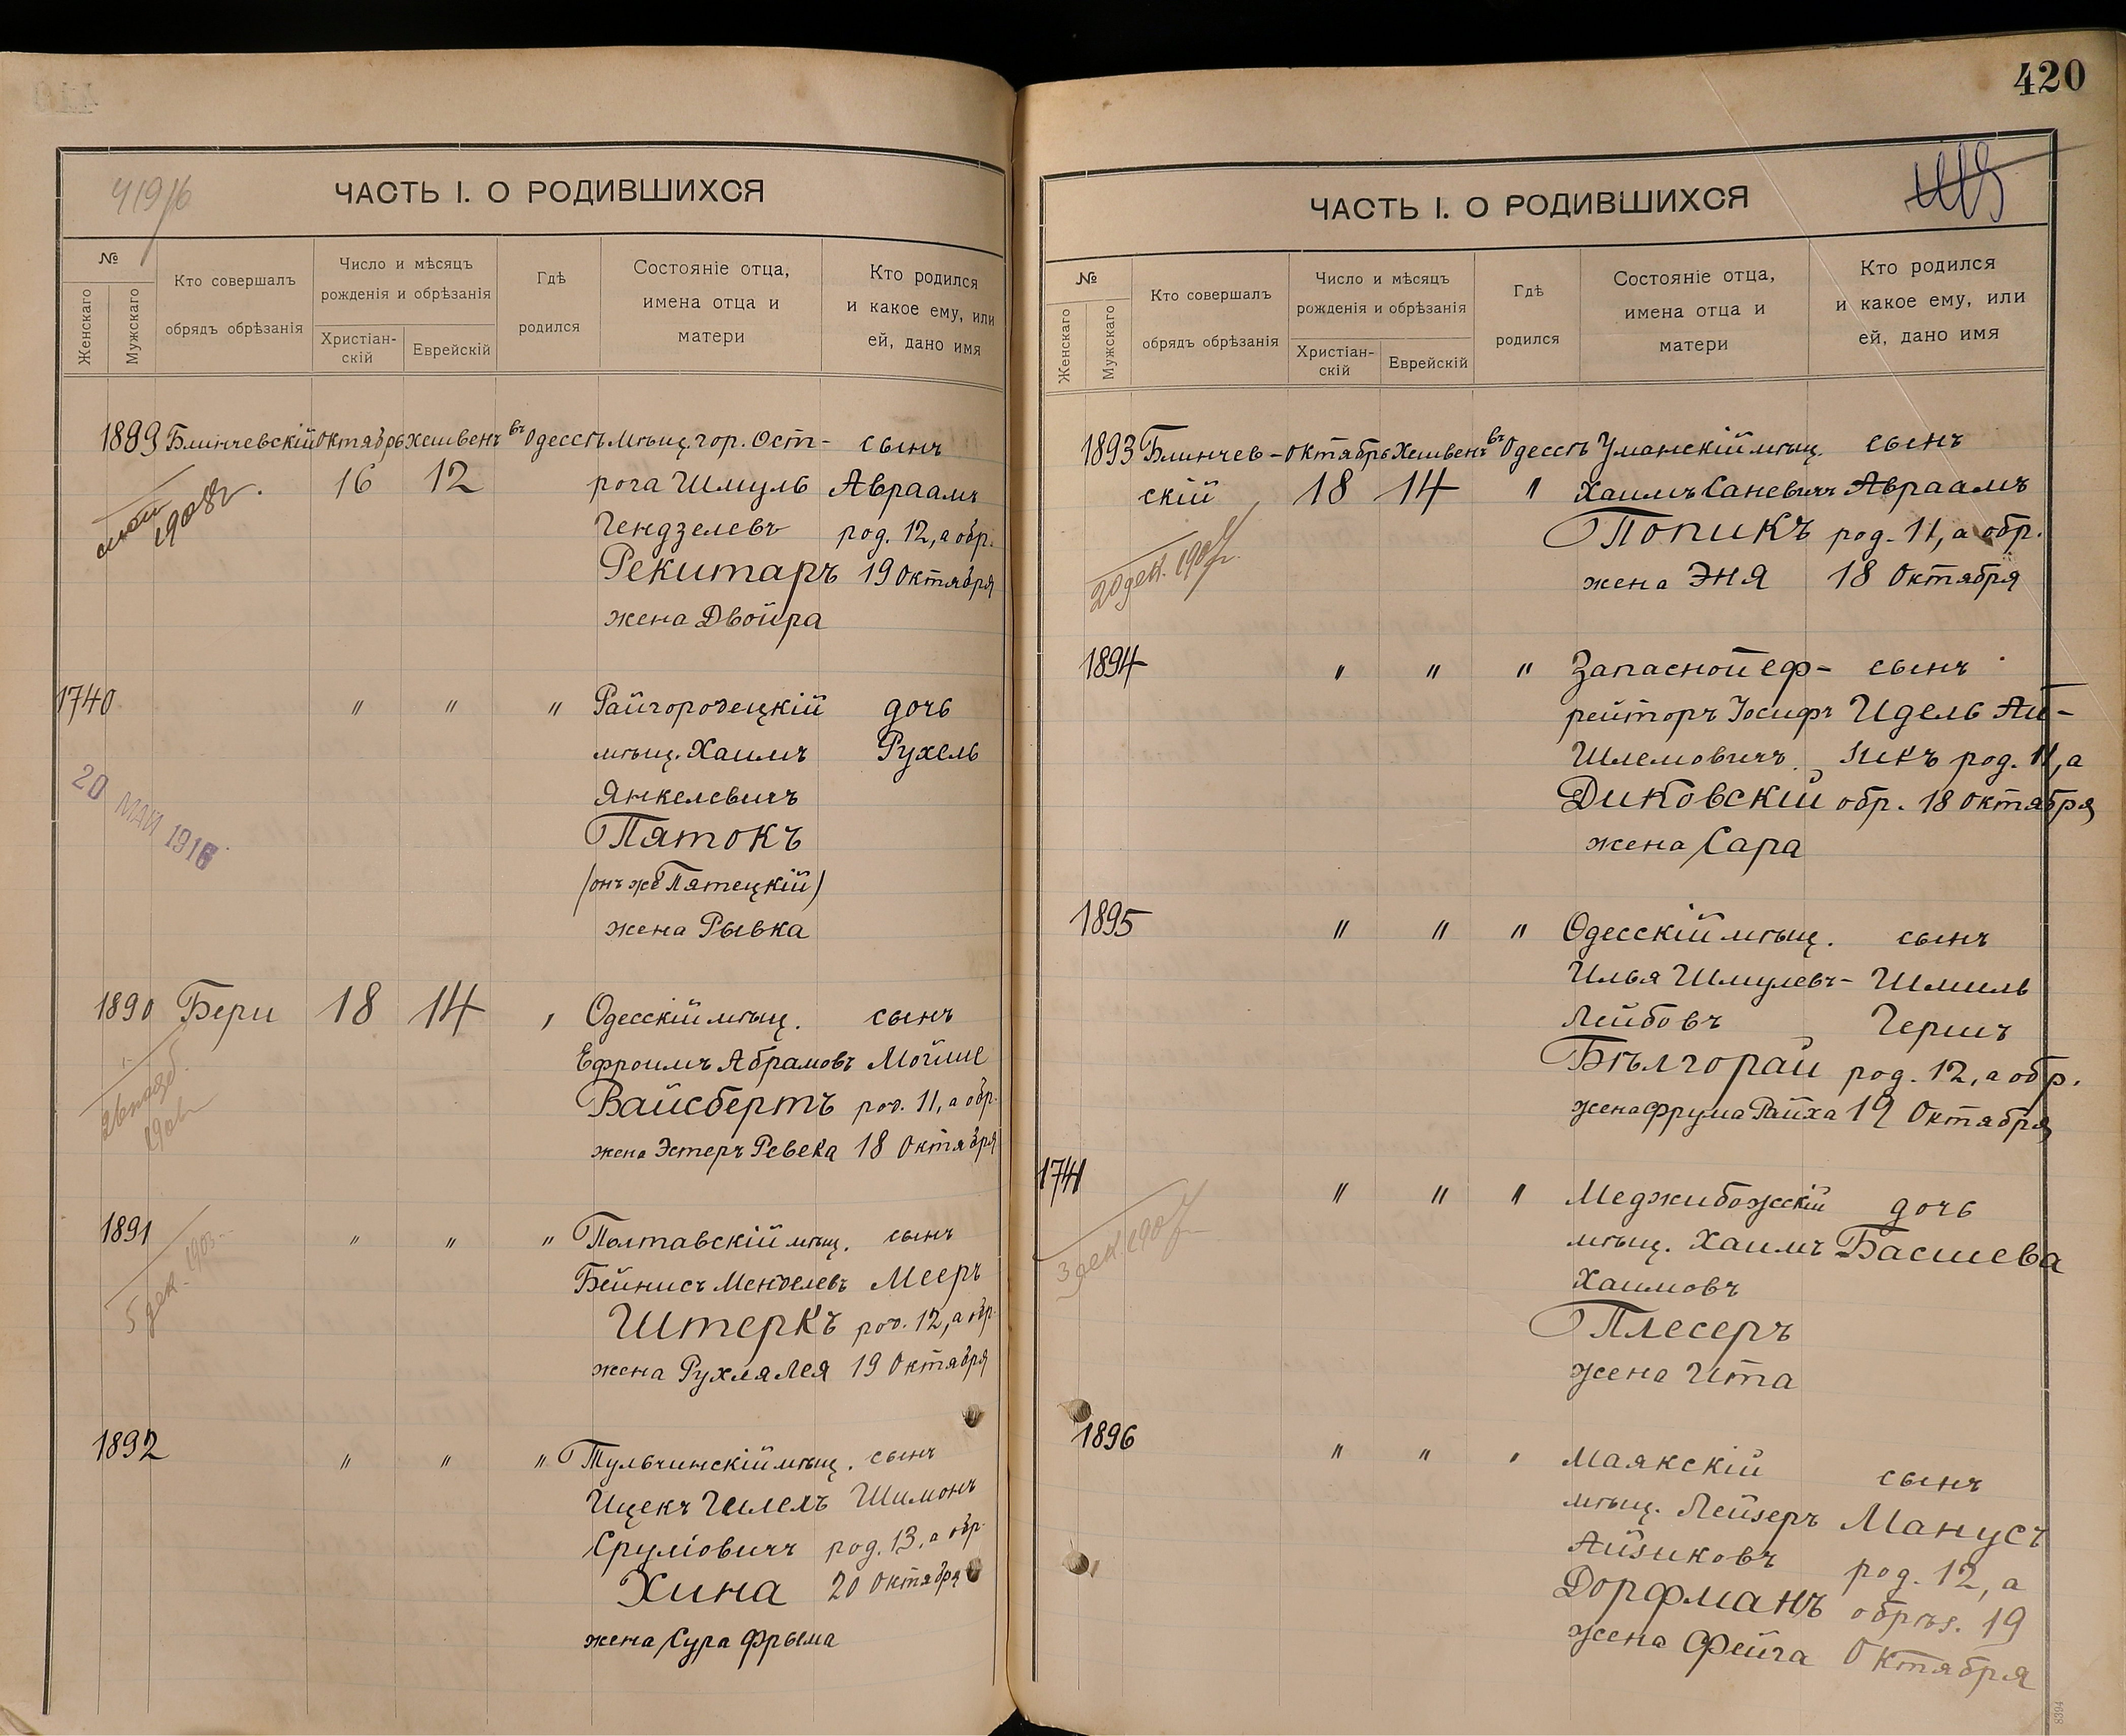 419/6
ЧАСТЬ I. О РОДИВШИХСЯ
№
Женскаго
Мужскаго
Кто совершалъ
обрядъ обрѣзанія
Число и мѣсяцъ
рожденія и обрѣзанія
Христіан-
скій
Еврейскій
Гдѣ
родился
Состояніе отца,
имена отца и
матери
Кто родился
и какое ему, или
ей, дано имя
1899 Блинчевскій Октябрь Хешвенъ въ Одессѣ Мѣщ. гор. Ост- сынъ
16 12 рога Шмуль Авраамъ
1908 г. Гендзелевъ род. 12, а обр.
Рекитаръ 19 Октября
жена Двойра
1740 " " " Райгородецкій дочь
мѣщ. Хаимъ Рухель
Янкелевичъ
20 МАЙ 1916
Пятокъ
(онъ же Пятецкій)
жена Рывка
1890 Бери 18 14 " Одесскій мѣщ. сынъ
Ефроимъ Абрамовъ Мойше
Вайсбертъ род. 11, а обр.
жена Эстеръ Ревека 18 Октября
1891 " " " Полтавскій мѣщ. сынъ
5 дек. 1903
Бейнисъ Менделевъ Мееръ
Штеркъ род. 12, а обр.
жена Рухля Лея 19 Октября
1892 " " " Тульчинскій мѣщ. сынъ
Ицекъ Гилелъ Шимонъ
Сруліовичъ род. 13, а обр.
Хина 20 Октября
жена Сура Фрыма
420
ЧАСТЬ I. О РОДИВШИХСЯ
№
Женскаго
Мужскаго
Кто совершалъ
обрядъ обрѣзанія
Число и мѣсяцъ
рожденія и обрѣзанія
Христіан-
скій
Еврейскій
Гдѣ
родился
Состояніе отца,
имена отца и
матери
Кто родился
и какое ему, или
ей, дано имя
1893 Блинчев- Октябрь Хешвенъ въ Одессѣ Уманскій мѣщ. сынъ
скій 18 14 " Хаимъ Саневичъ Авраамъ
Попикъ род. 11, а обр.
20 дек. 1907 г.
жена Эня 18 Октября
1894 " " " Запасной еф- сынъ
рейторъ Іосифъ Идель Ай-
Шлемовичъ зикъ род. 11, а
Диковскій обр. 18 Октября
жена Сара
1895 " " " Одесскій мѣщ. сынъ
Илья Шмулевъ- Шмиль
Лейбовъ Гершъ
Бѣлгорай род. 12, а обр.
жена Фрума Райха 19 Октября
1741 " " " Меджибожскій дочь
3 дек. 1907 г.
мѣщ. Хаимъ Басшева
Хаимовъ
Плесеръ
жена Ита
1896 " " " Маякскій сынъ
мѣщ. Лейзеръ Манусъ
Айзиковъ род. 12, а
Дорфманъ обрѣз. 19
жена Фейга Октября
8394